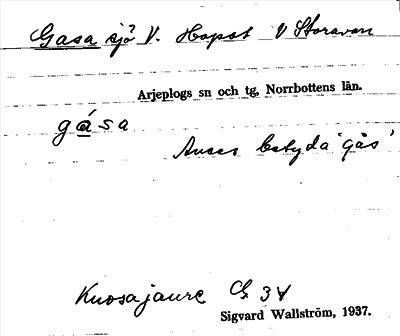 Gasa sjö V. Hapst V Storavan
Arjeplogs sn och tg, Norrbottens län.
gása
Anses betyda 'gås'
Kuosajaure G 34
Sigvard Wallström, 1937.